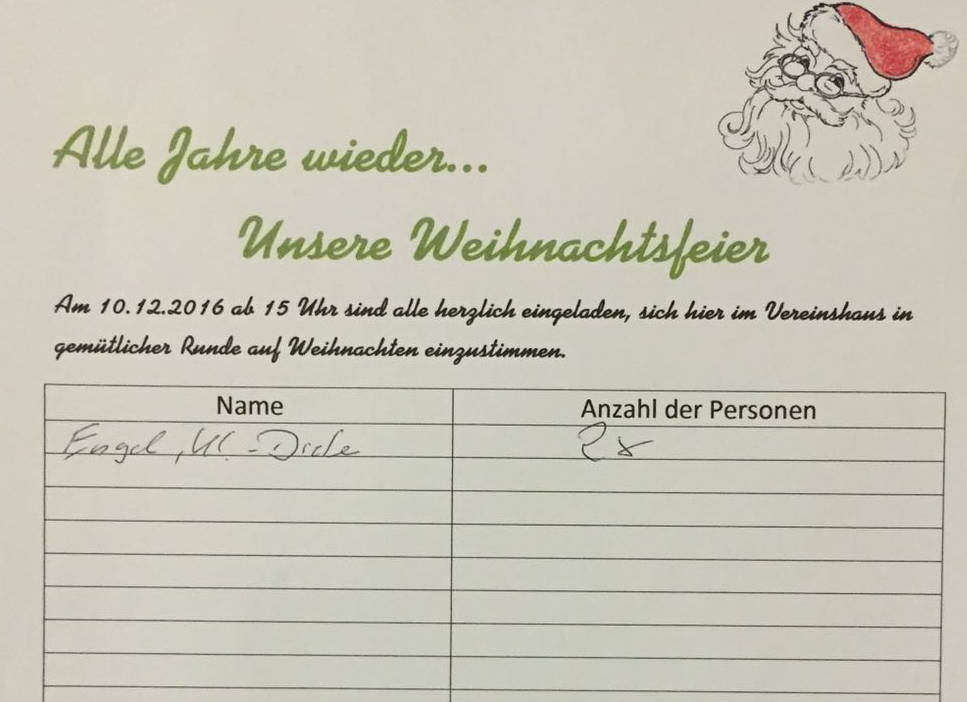 Alle Jahre wieder...
Unsere Weihnachtsfeier
Am 10.12.2016 ab 15 Uhr sind alle herzlich eingeladen, sich hier im Vereinshaus in
gemütlicher Runde auf Weihnachten einzustimmen.
Name Anzahl der Personen
Engel, 2x